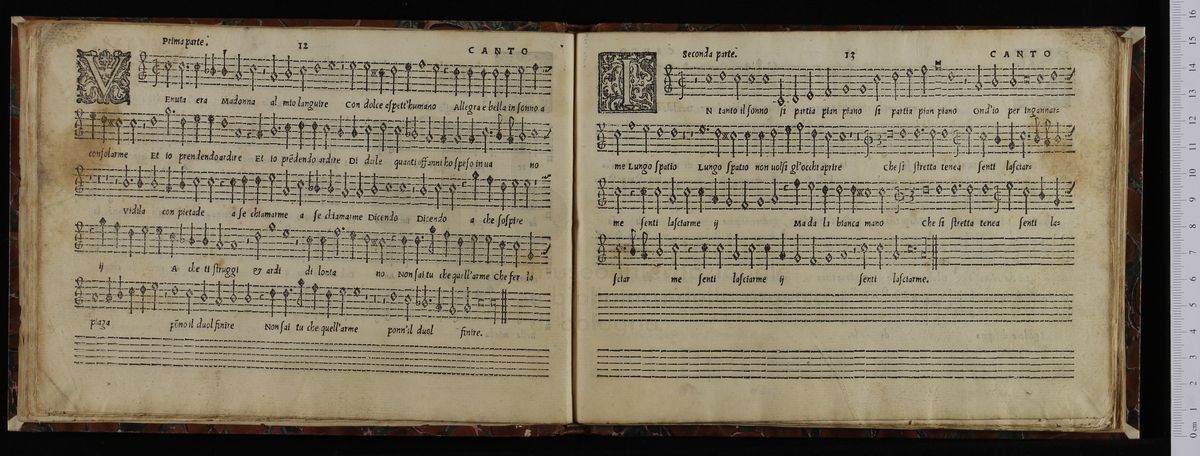 Prima parte.
12
CANTO
VEnuta era Madonna al mio languire Con dolce aspett'humano Allegra e bella in sonno a
consolarme Et io prendendo ardire Et io prēdendo ardire Di dirle quanti affanni ho speso in ua no
Vidila con pietade a se chiamarme a se chiamarme Dicendo Dicendo a che sospire
ij A che ti struggi & ardi di lonta no Non sai tu che quell'arme Che fer la
piaga pōno il duol finire Non sai tu che quell'arme ponn'il duol finire.
Seconda parte.
13
CANTO
IN tanto il sonno si partia pian piano si partia pian piano Ond'io per ingannar
me Lungo spatio Lungo spatio non uolsi gl'occhi aprire Che si stretta tenea senti lasciar
me senti lasciarme ij Ma da la bianca mano Che si stretta tenea senti la
sciar me senti lasciarme ij senti lasciarme.
0 cm 1 2 3 4 5 6 7 8 9 10 11 12 13 14 15 16